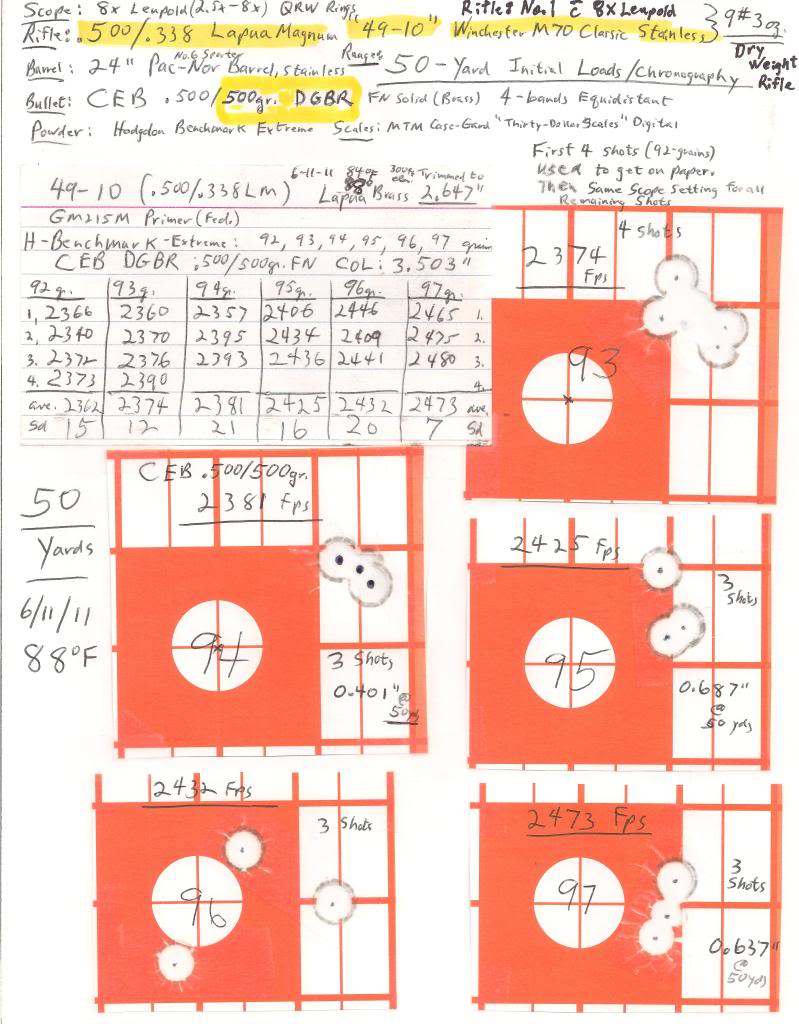 Scope: 8x Leupold (2.5x-8x) QRW Rings
Rifle No.1 c 8x Leupold
Rifle: .500/.338 Lapua Magnum "49-10" Winchester M70 Classic Stainless
9# 3oz.
Dry Weight Rifle
Barrel: 24" Pac-Nor Barrel, stainless
No.6 Sporter
Range: 50-Yard Initial Loads/Chronography
Bullet: CEB .500/500gr. DGBR FN Solid (Brass) 4-bands Equidistant
Powder: Hodgdon Benchmark Extreme Scales: MTM Case-Gard "Thirty-Dollar Scales" Digital
First 4 shots (92-grains)
used to get on paper.
Then Same Scope Setting for all
Remaining Shots
6-11-11 84°F 300ft elev. Trimmed to
88°
49-10 (.500/.338LM) Lapua Brass 2.647"
GM215M Primer (Fed.)
H-Benchmark-Extreme: 92, 93, 94, 95, 96, 97 grains
CEB DGBR .500/500gr. FN COL: 3.503"
92gr. 93gr. 94gr. 95gr. 96gr. 97gr.
1. 2366 2360 2357 2406 2446 2465 1.
2. 2340 2370 2395 2434 2409 2475 2.
3. 2372 2376 2393 2436 2441 2480 3.
4. 2373 2390 4.
ave. 2362 2374 2381 2425 2432 2473 ave.
sd 15 12 21 16 20 7 sd
4 shots
2374
Fps
93
50
Yards
6/11/11
88°F
CEB .500/500gr.
2381 fps
94
3 Shots
0.401"
@
50yds
2425 Fps
3
Shots
95
0.687"
@
50 yds
2432 Fps
3 Shots
96
2473 Fps
97
3
Shots
0.637"
@
50yds